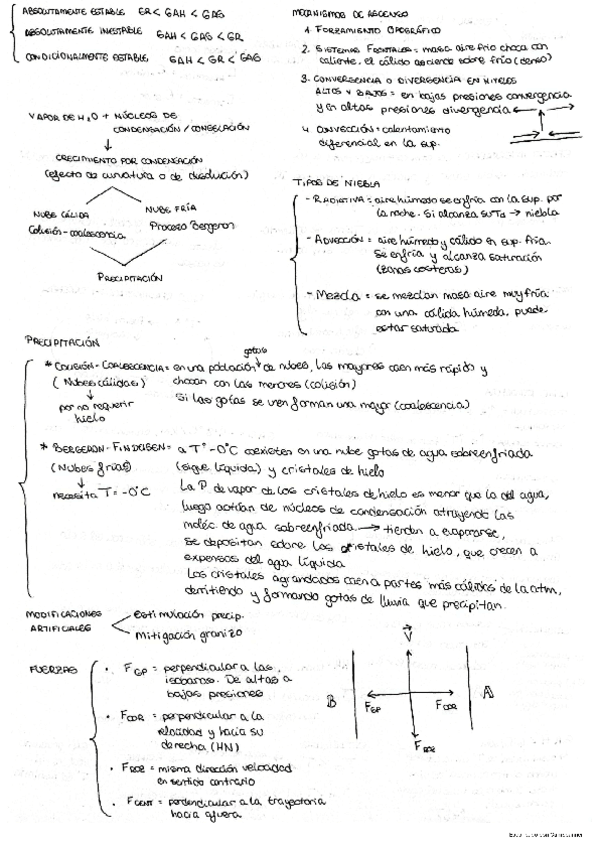 ABSOLUTAMENTE ESTABLE GR < GAH < GAS
ABSOLUTAMENTE INESTABLE GAH < GAS < GR
CONDICIONALMENTE ESTABLE GAH < GR < GAS
VAPOR DE H2O + NÚCLEOS DE
CONDENSACIÓN / CONGELACIÓN
CRECIMIENTO POR CONDENSACIÓN
(efecto de curvatura o de disolución)
NUBE CÁLIDA
Colisión-coalescencia
NUBE FRÍA
Proceso Bergeron
PRECIPITACIÓN
MECANISMOS DE ASCENSO
1. FORZAMIENTO OROGRÁFICO
2. SISTEMAS FRONTALES = masa aire frío choca con
caliente, el cálido asciende sobre frío (denso)
3. CONVERGENCIA O DIVERGENCIA EN NIVELES
ALTOS Y BAJOS = en bajas presiones convergencia
y en altas presiones divergencia
4. CONVECCIÓN = calentamiento
diferencial en la sup.
TIPOS DE NIEBLA
- RADIATIVA = aire húmedo se enfría con la sup. por
la noche. Si alcanza su Td → niebla
- ADVECCIÓN = aire húmedo y cálido en sup. fría.
Se enfría y alcanza saturación
(zonas costeras)
- Mezcla = se mezclan masa aire muy fría
con una cálida húmeda, puede
estar saturada
PRECIPITACIÓN
* COLISIÓN-COALESCENCIA = en una población gotas de nubes, las mayores caen más rápido y
(Nubes cálidas) chocan con las menores (colisión)
por no requerir hielo
Si las gotas se unen forman una mayor (coalescencia)
* BERGERON-FINDEISEN = a Tª -0°C coexisten en una nube gotas de agua sobreenfriada
(Nubes frías) (sigue líquida) y cristales de hielo
necesita T = -0°C La P de vapor de los cristales de hielo es menor que la del agua,
luego actúan de núcleos de condensación atruyendo las
moléc. de agua sobreenfriada → tienden a evaporarse,
se depositan sobre los cristales de hielo, que crecen a
expensas del agua líquida
Los cristales agrandados caen a partes más cálidas de la atm,
derritiendo y formando gotas de lluvia que precipitan.
MODIFICACIONES
ARTIFICIALES
estimulación precip.
mitigación granizo
FUERZAS
• FGP = perpendicular a las
isobaras. De altas a
bajas presiones
• FCOR = perpendicular a la
velocidad y hacia su
derecha (HN)
• FROZ = misma dirección velocidad
en sentido contrario
• FCENT = perpendicular a la trayectoria
hacia afuera
V
B
FGP
FCOR
A
FROZ